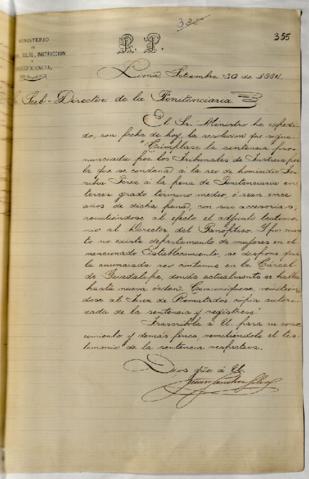 335
355
MINISTERIO
DE
JUSTICIA, CULTO, INSTRUCCION
Y
BENEFICENCIA
R. P.
Lima, Setiembre 30 de 1891.
Sub-Director de la Penitenciaria
El Sr. Ministro ha expedi-
do, con fecha de hoy, la resolucion que sigue:
"Cúmplase la sentencia pro-
nunciada por los Tribunales de Justicia, por
la que se condena á la reo de homicidio
Perez á la pena de Penitenciaria en
tercer grado término medio, ó sean once
años de dicha pena, con sus accesorias;
remitiéndose al efecto el adjunto testimo-
nio al Director del Panóptico. Y por cuan-
to no existe departamento de mujeres en el
mencionado Establecimiento, se dispone que
la enunciada reo continue en la Cárcel
de Guadalupe, donde actualmente se halla,
hasta nueva órden. Comuníquese, remitién-
dose al Juez de Rematados copia autori-
zada de la sentencia y regístrese."
Trascríbola á U. para su cono-
cimiento y demás fines, remitiéndole el tes-
timonio de la sentencia respectiva.
Dios gue. á U.